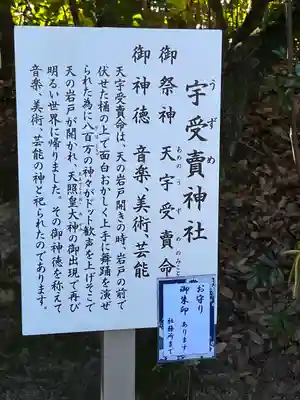 宇受賣神社
うずめ
御祭神 天宇受賣命
あめのうずめのみこと
御神徳 音楽、美術、芸能
天宇受賣命は、天の岩戸開きの時、岩戸の前で
伏せた桶の上で面白おかしく上手に舞踊を演ぜ
られた為に八百万の神々がドット歓声を上げそこで
天の岩戸が開かれ、天照皇大神の御出現で再び
明るい世界に帰りました。その御神徳を称えて
音楽、美術、芸能の神と祀られたのであります。
お守り
御朱印 あります
社務所まで